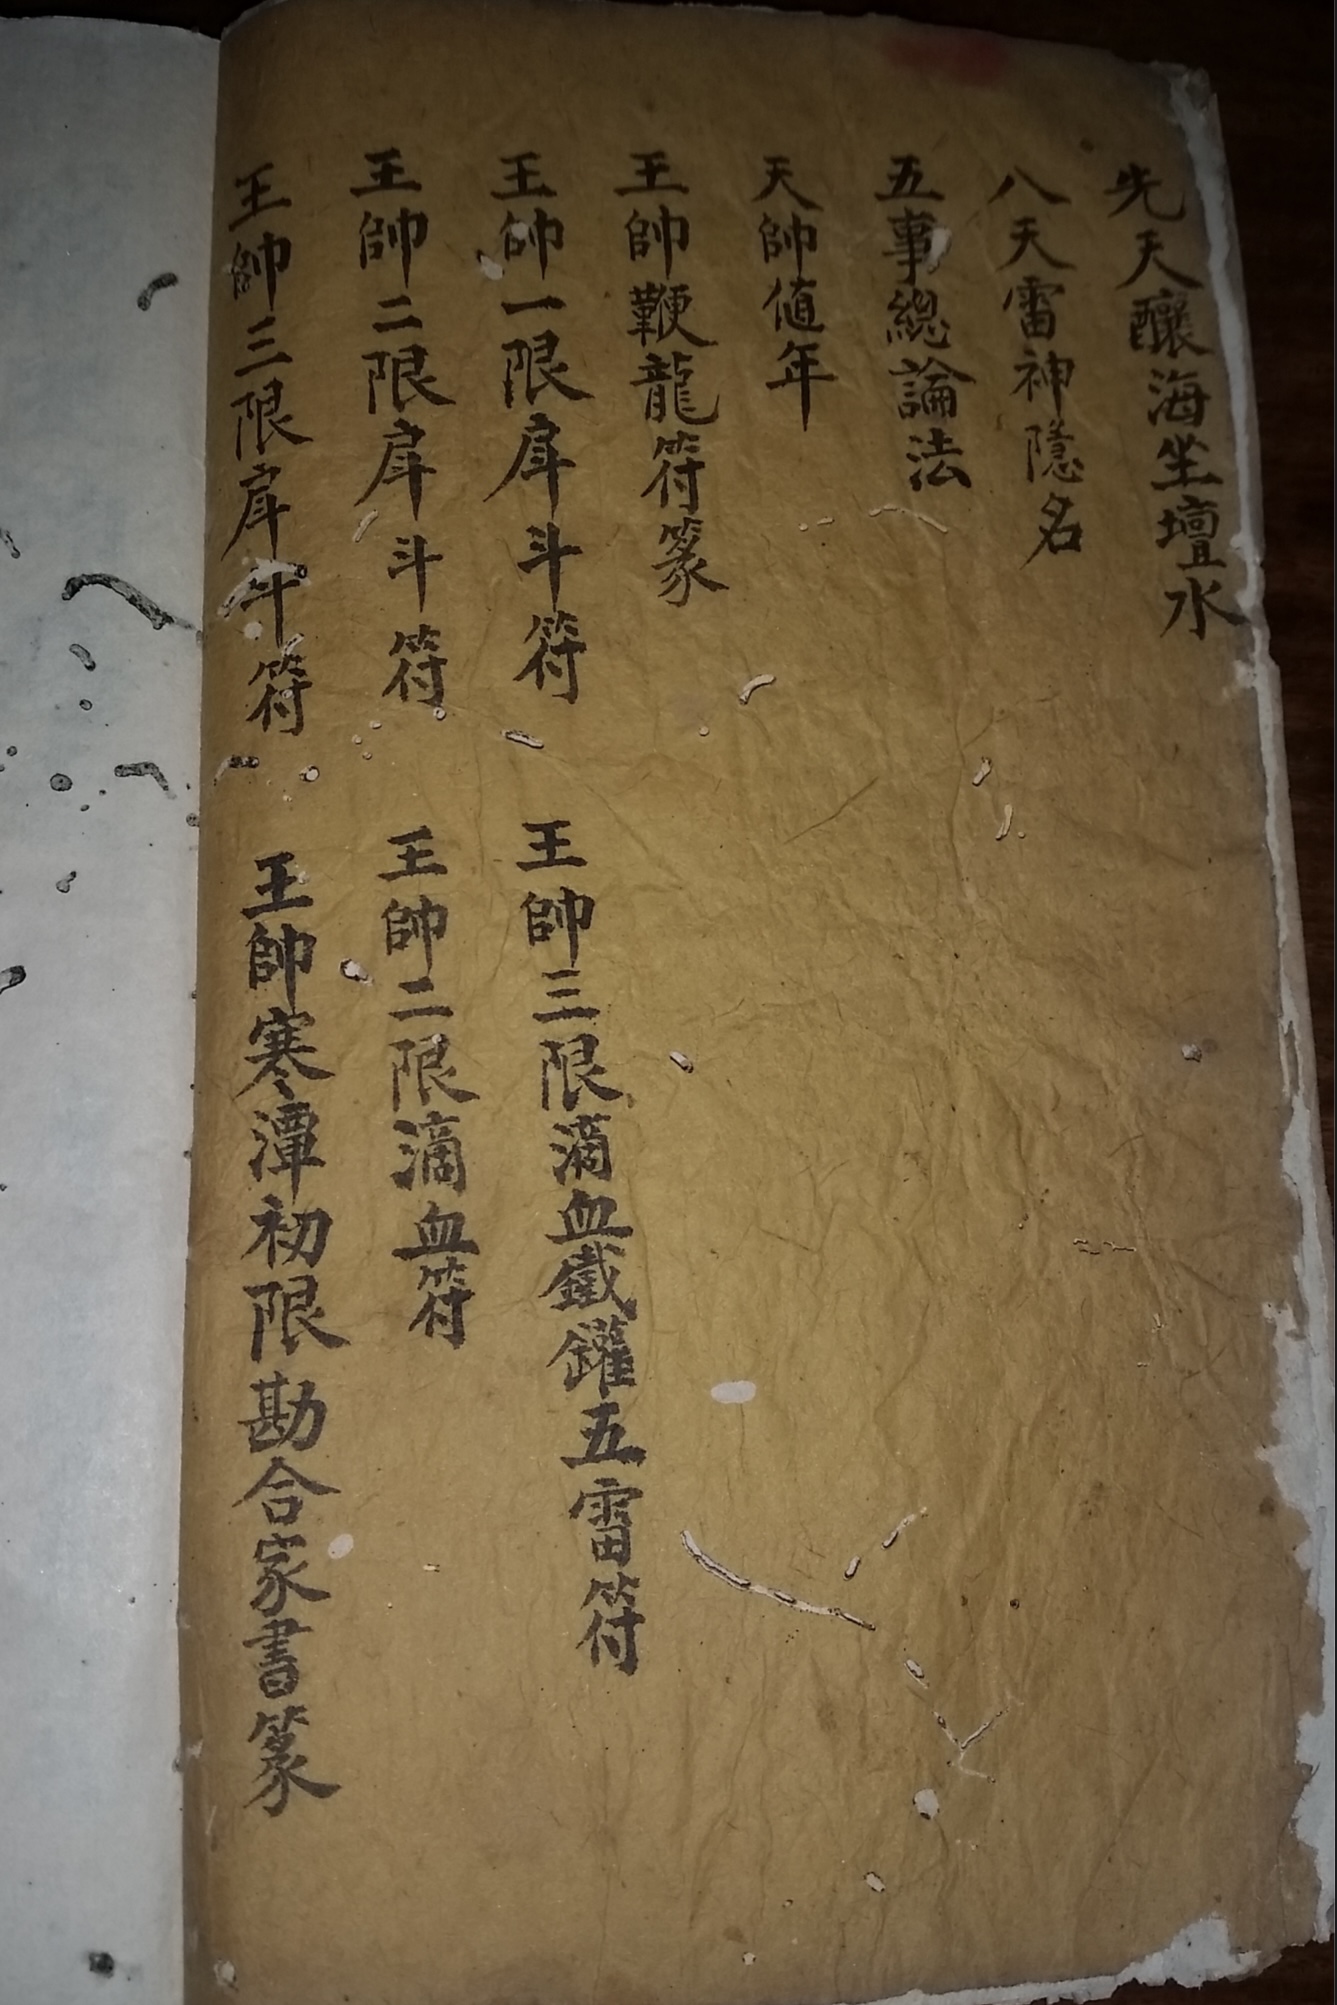 先天釀海坐壇水
八天雷神隱名
五事總論法
天帥値年
王帥鞭龍符篆
王帥一限戽斗符
王帥三限滴血鐵罐五雷符
王帥二限戽斗符
王帥二限滴血符
王帥三限戽斗符
王帥寒潭初限勘合家書篆